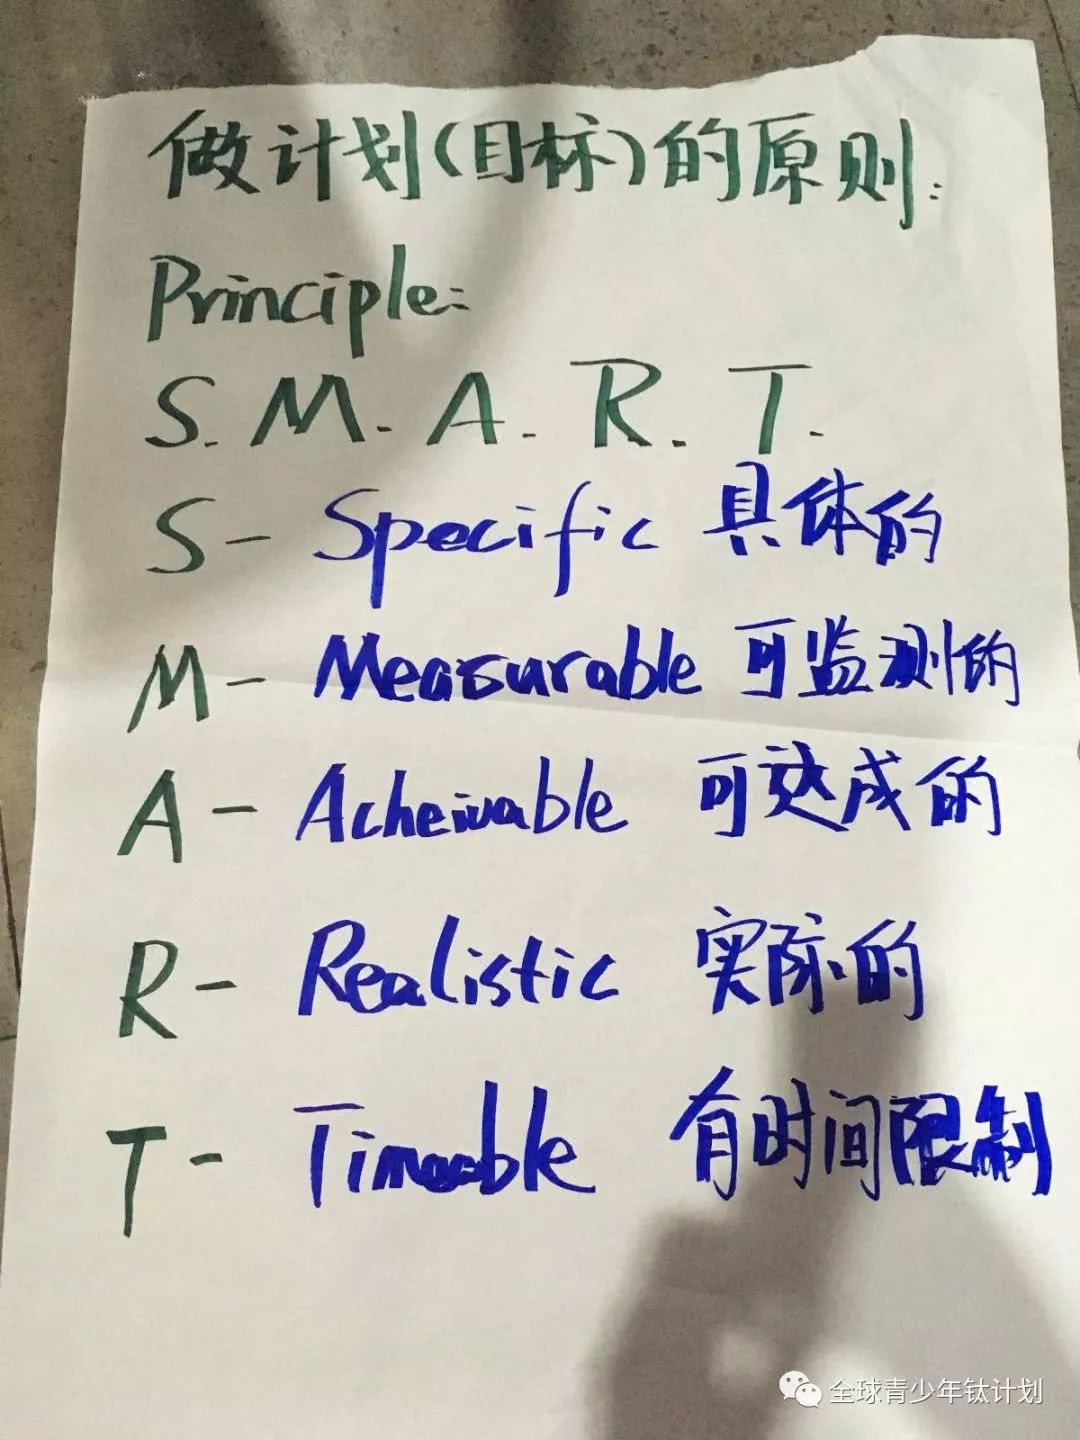 做计划(目标)的原则:
Principle:
S. M. A. R. T.
S - Specific 具体的
M - Measurable 可监测的
A - Acheivable 可达成的
R - Realistic 实际的
T - Timeable 有时间限制
全球青少年钛计划